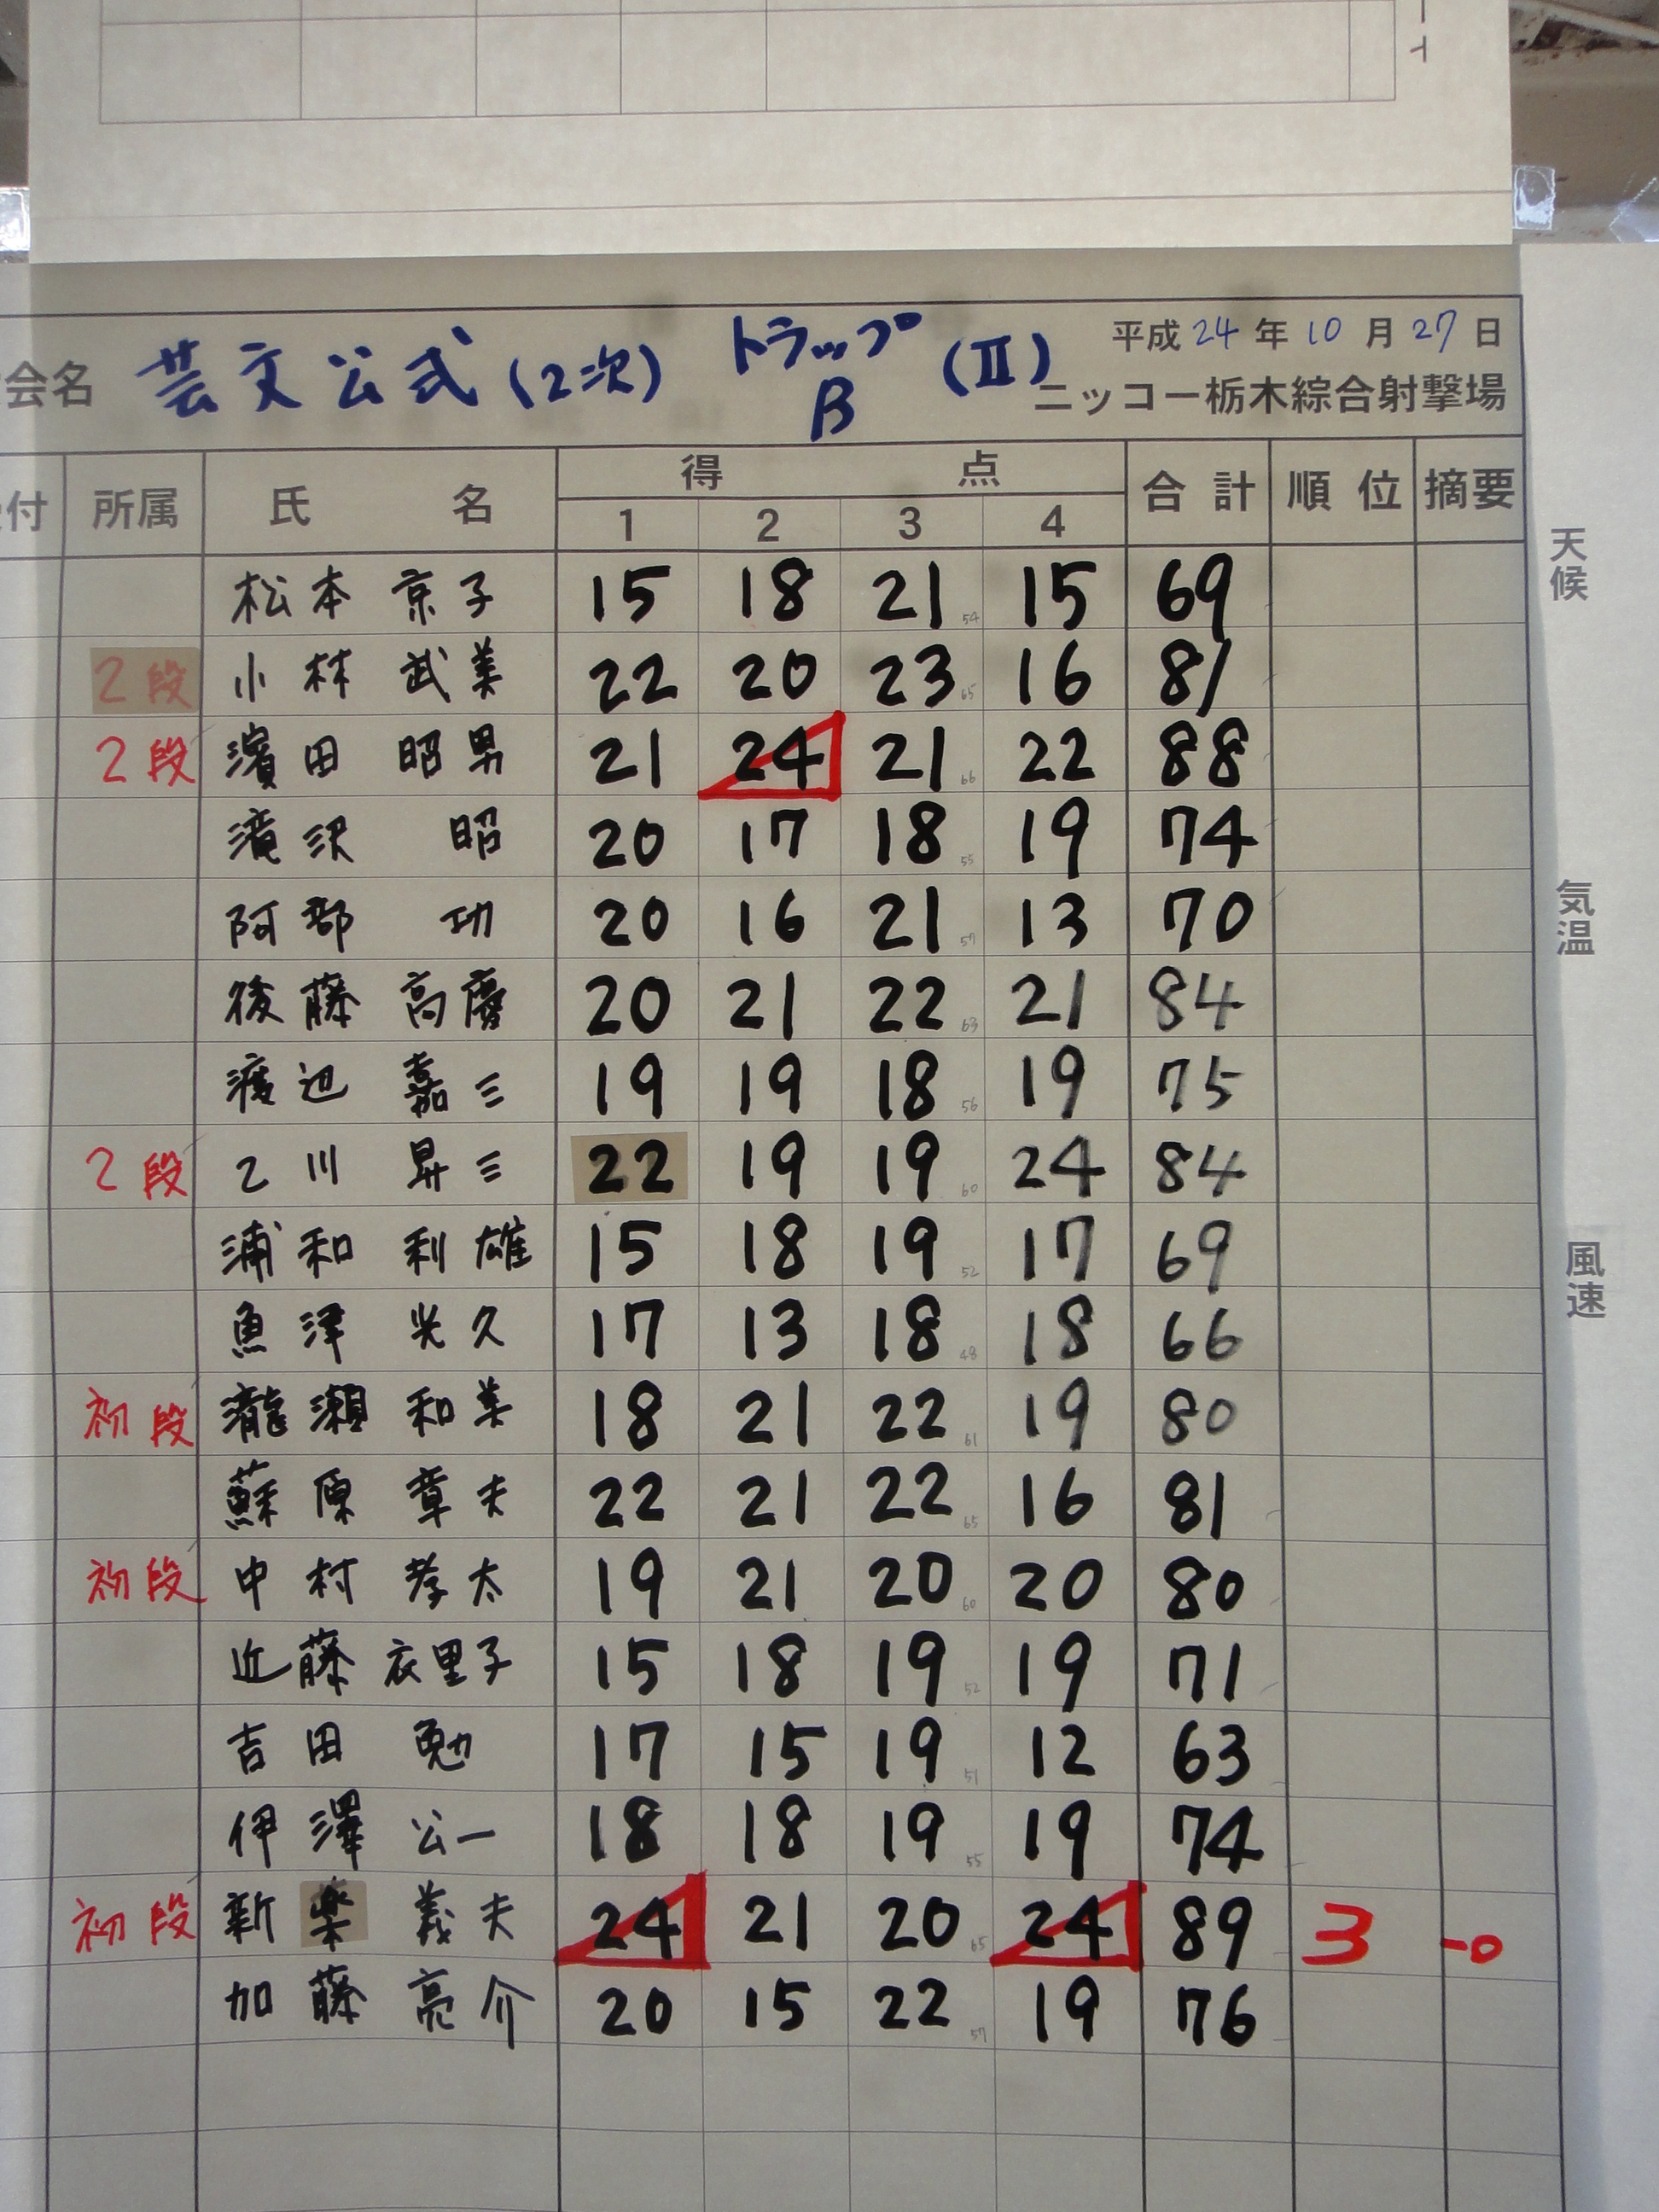 会名 芸文公式(2次) トラップB (Ⅱ) 平成24年10月27日
ニッコー栃木綜合射撃場
付 所属 氏名 得点 合計 順位 摘要
1 2 3 4
松本 京子 15 18 21 54 15 69
2段 小林 武美 22 20 23 65 16 81
2段 濱田 昭男 21 24 21 66 22 88
滝沢 昭 20 17 18 55 19 74
阿部 功 20 16 21 57 13 70
後藤 高慶 20 21 22 63 21 84
渡辺 嘉三 19 19 18 56 19 75
2段 乙川 昇三 22 19 19 60 24 84
浦和 利雄 15 18 19 52 17 69
魚津 光久 17 13 18 48 18 66
初段 瀧瀬 和美 18 21 22 61 19 80
蘇原 章夫 22 21 22 65 16 81
初段 中村 孝太 19 21 20 60 20 80
近藤 衣里子 15 18 19 52 19 71
吉田 勉 17 15 19 51 12 63
伊澤 公一 18 18 19 55 19 74
初段 新楽 義夫 24 21 20 65 24 89 3 -0
加藤 亮介 20 15 22 57 19 76
天候
気温
風速